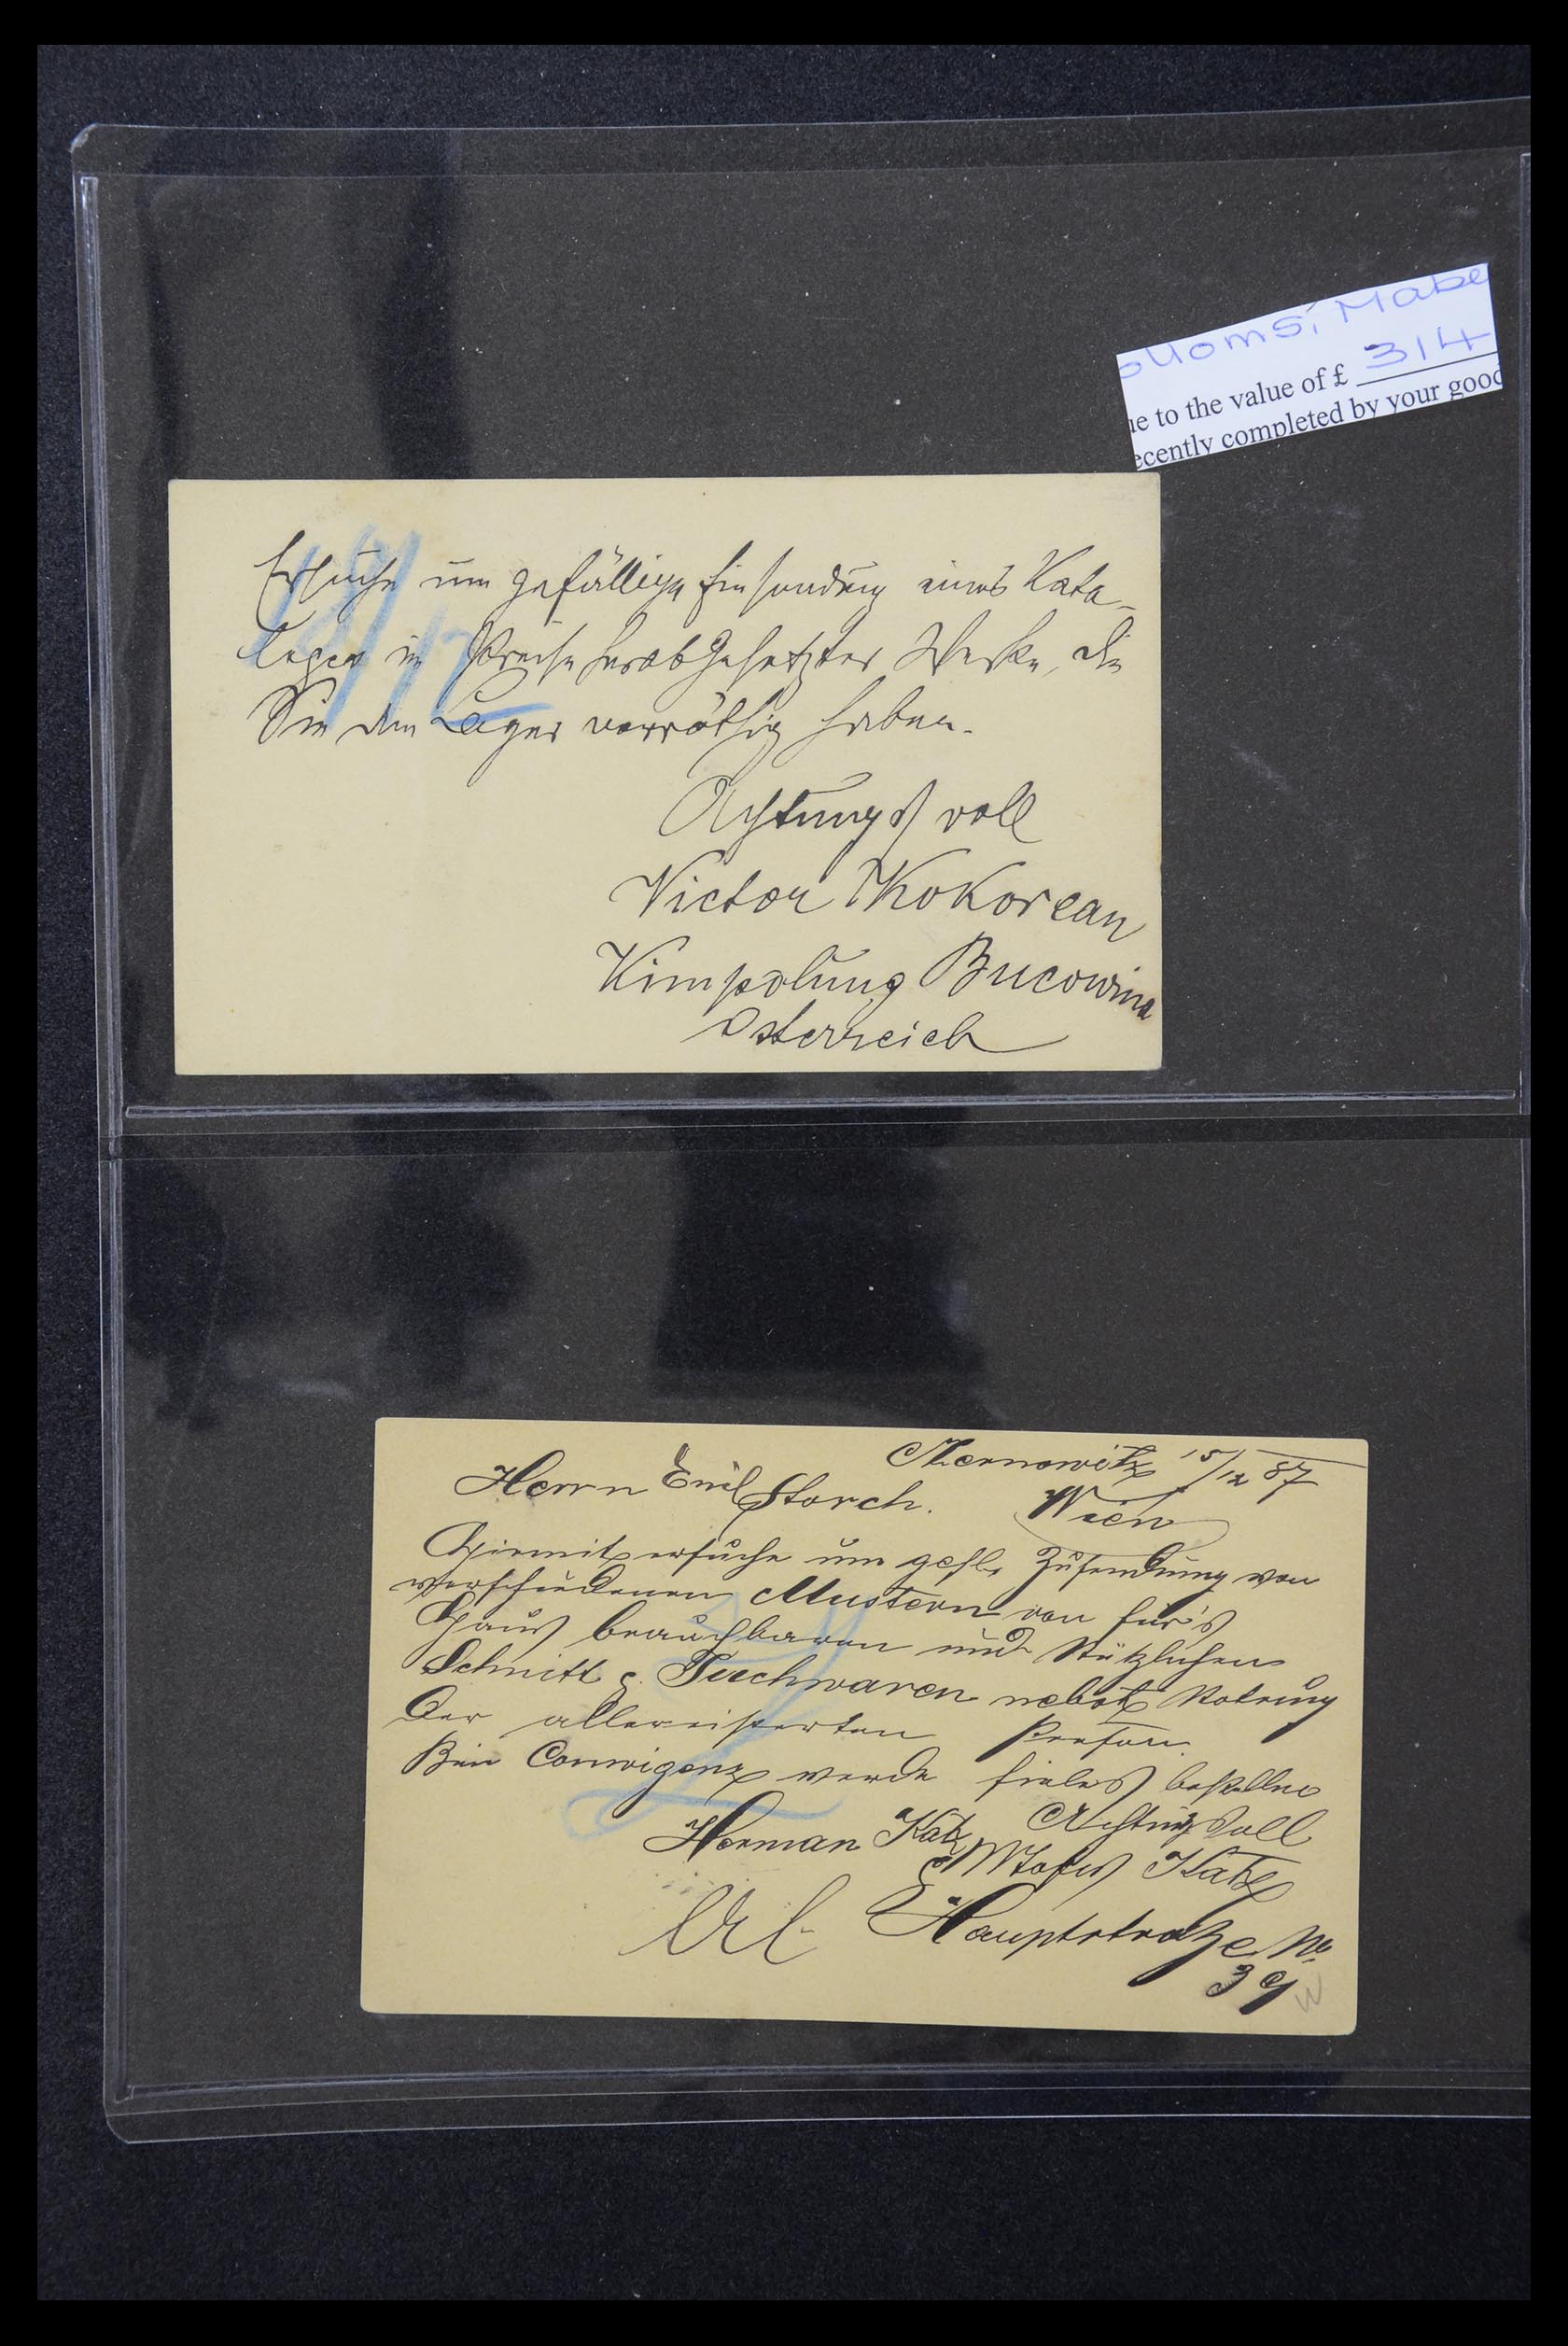 ouoms, Mabe
314
ue to the value of £
ecently completed by your good
Ersuche um gefällige Einsendung eines Kata-
loges im Preise herabgesetzter Werke, die
Sie am Lager vorräthig haben.
Achtungsvoll
Victor Kokorean
Kimpolung Bucowina
Österreich
Czernowitz 15/12 87
Herrn Emil Storch. Wien
Hiermit ersuche um gefl. Zusendung von
verschiedenen Mustern von für's
Haus brauchbaren und Nützlichen
Schnitt & Tuchwaren nebst Notirung
der allerei Preisen
Bin werde bestellen
Achtungsvoll
Herman Katz
Katz
Hauptstraße No
39